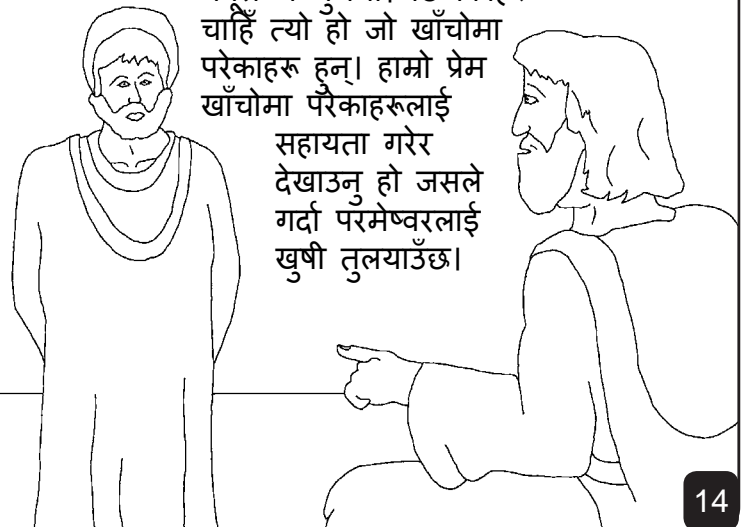 चाहिँ त्यो हो जो खाँचोमा
परेकाहरू हुन्। हाम्रो प्रेम
खाँचोमा परेकाहरूलाई
सहायता गरेर
देखाउनु हो जसले
गर्दा परमेष्वरलाई
खुषी तुलयाउँछ।
14